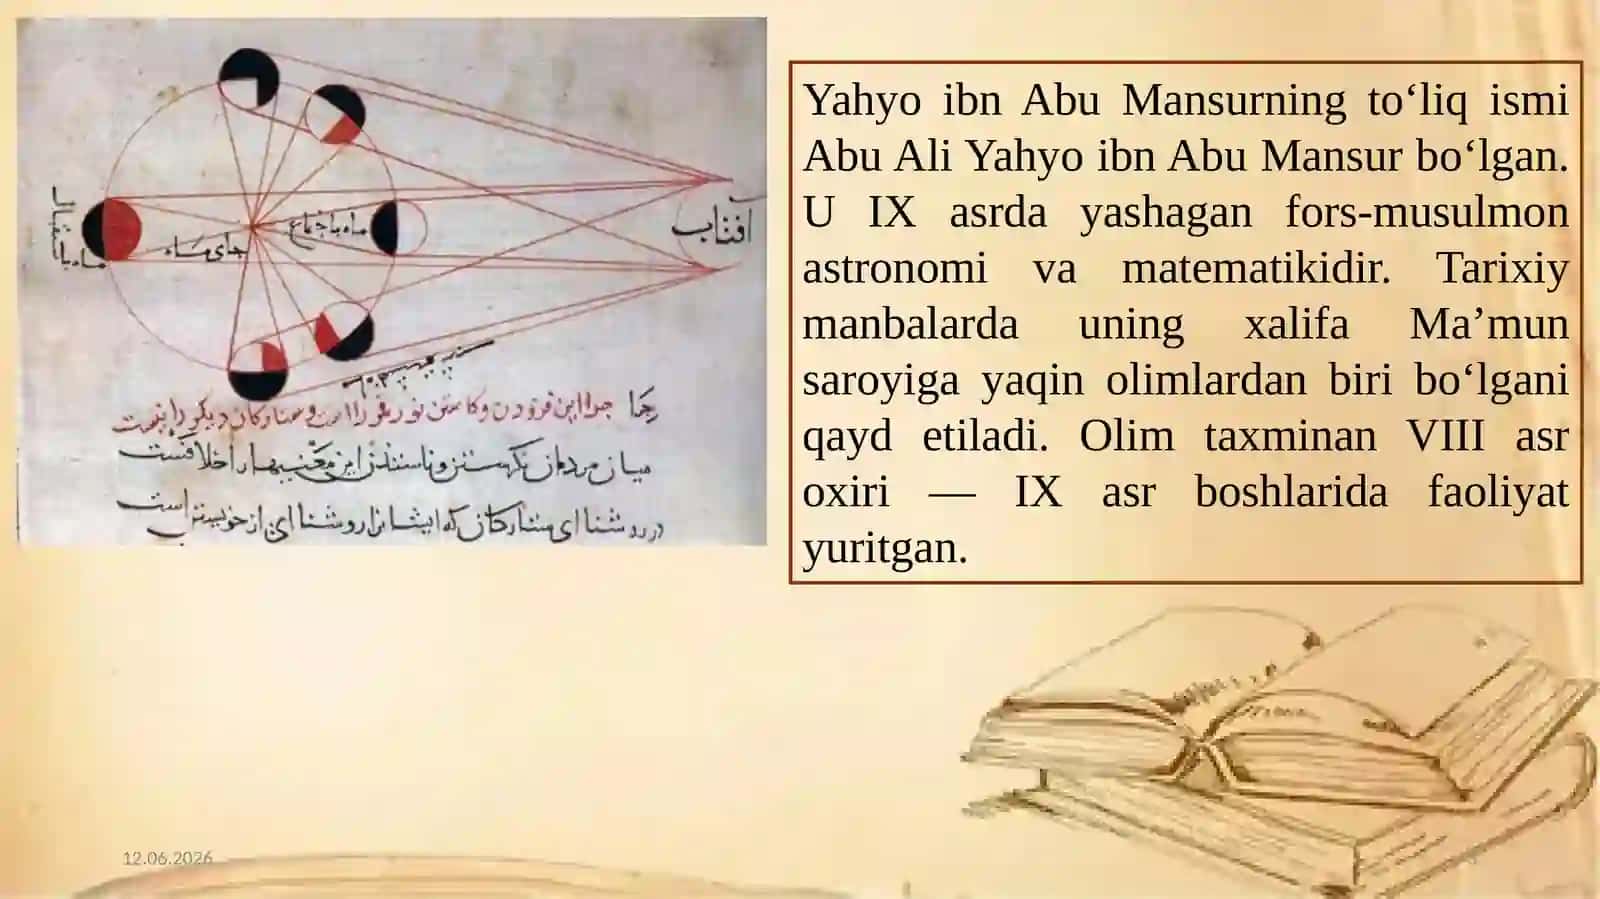 آفتاب
ماه باجتماع
جای ماه
ماه باستقبال
چرا این فزودن و کاستن نور قمر را است و ستارگان دیگر را نیست
میان مردمان
روشنای ستارگان که ایشانرا روشنای از خویشتن است
Yahyo ibn Abu Mansurning to‘liq ismi
Abu Ali Yahyo ibn Abu Mansur bo‘lgan.
U IX asrda yashagan fors-musulmon
astronomi va matematikidir. Tarixiy
manbalarda uning xalifa Ma’mun
saroyiga yaqin olimlardan biri bo‘lgani
qayd etiladi. Olim taxminan VIII asr
oxiri — IX asr boshlarida faoliyat
yuritgan.
12.06.2026